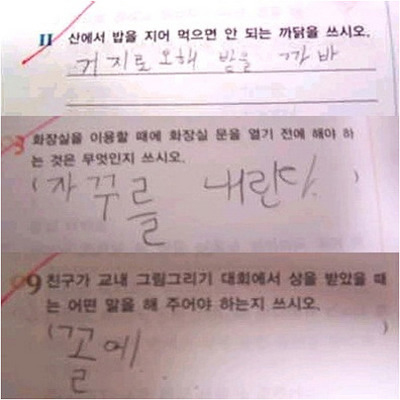 11 산에서 밥을 지어 먹으면 안 되는 까닭을 쓰시오.
거지로 오해 받을 까바
3 화장실을 이용할 때에 화장실 문을 열기 전에 해야 하
는 것은 무엇인지 쓰시오.
(자꾸를 내린다.)
9 친구가 교내 그림그리기 대회에서 상을 받았을 때
는 어떤 말을 해 주어야 하는지 쓰시오.
(꼴에)